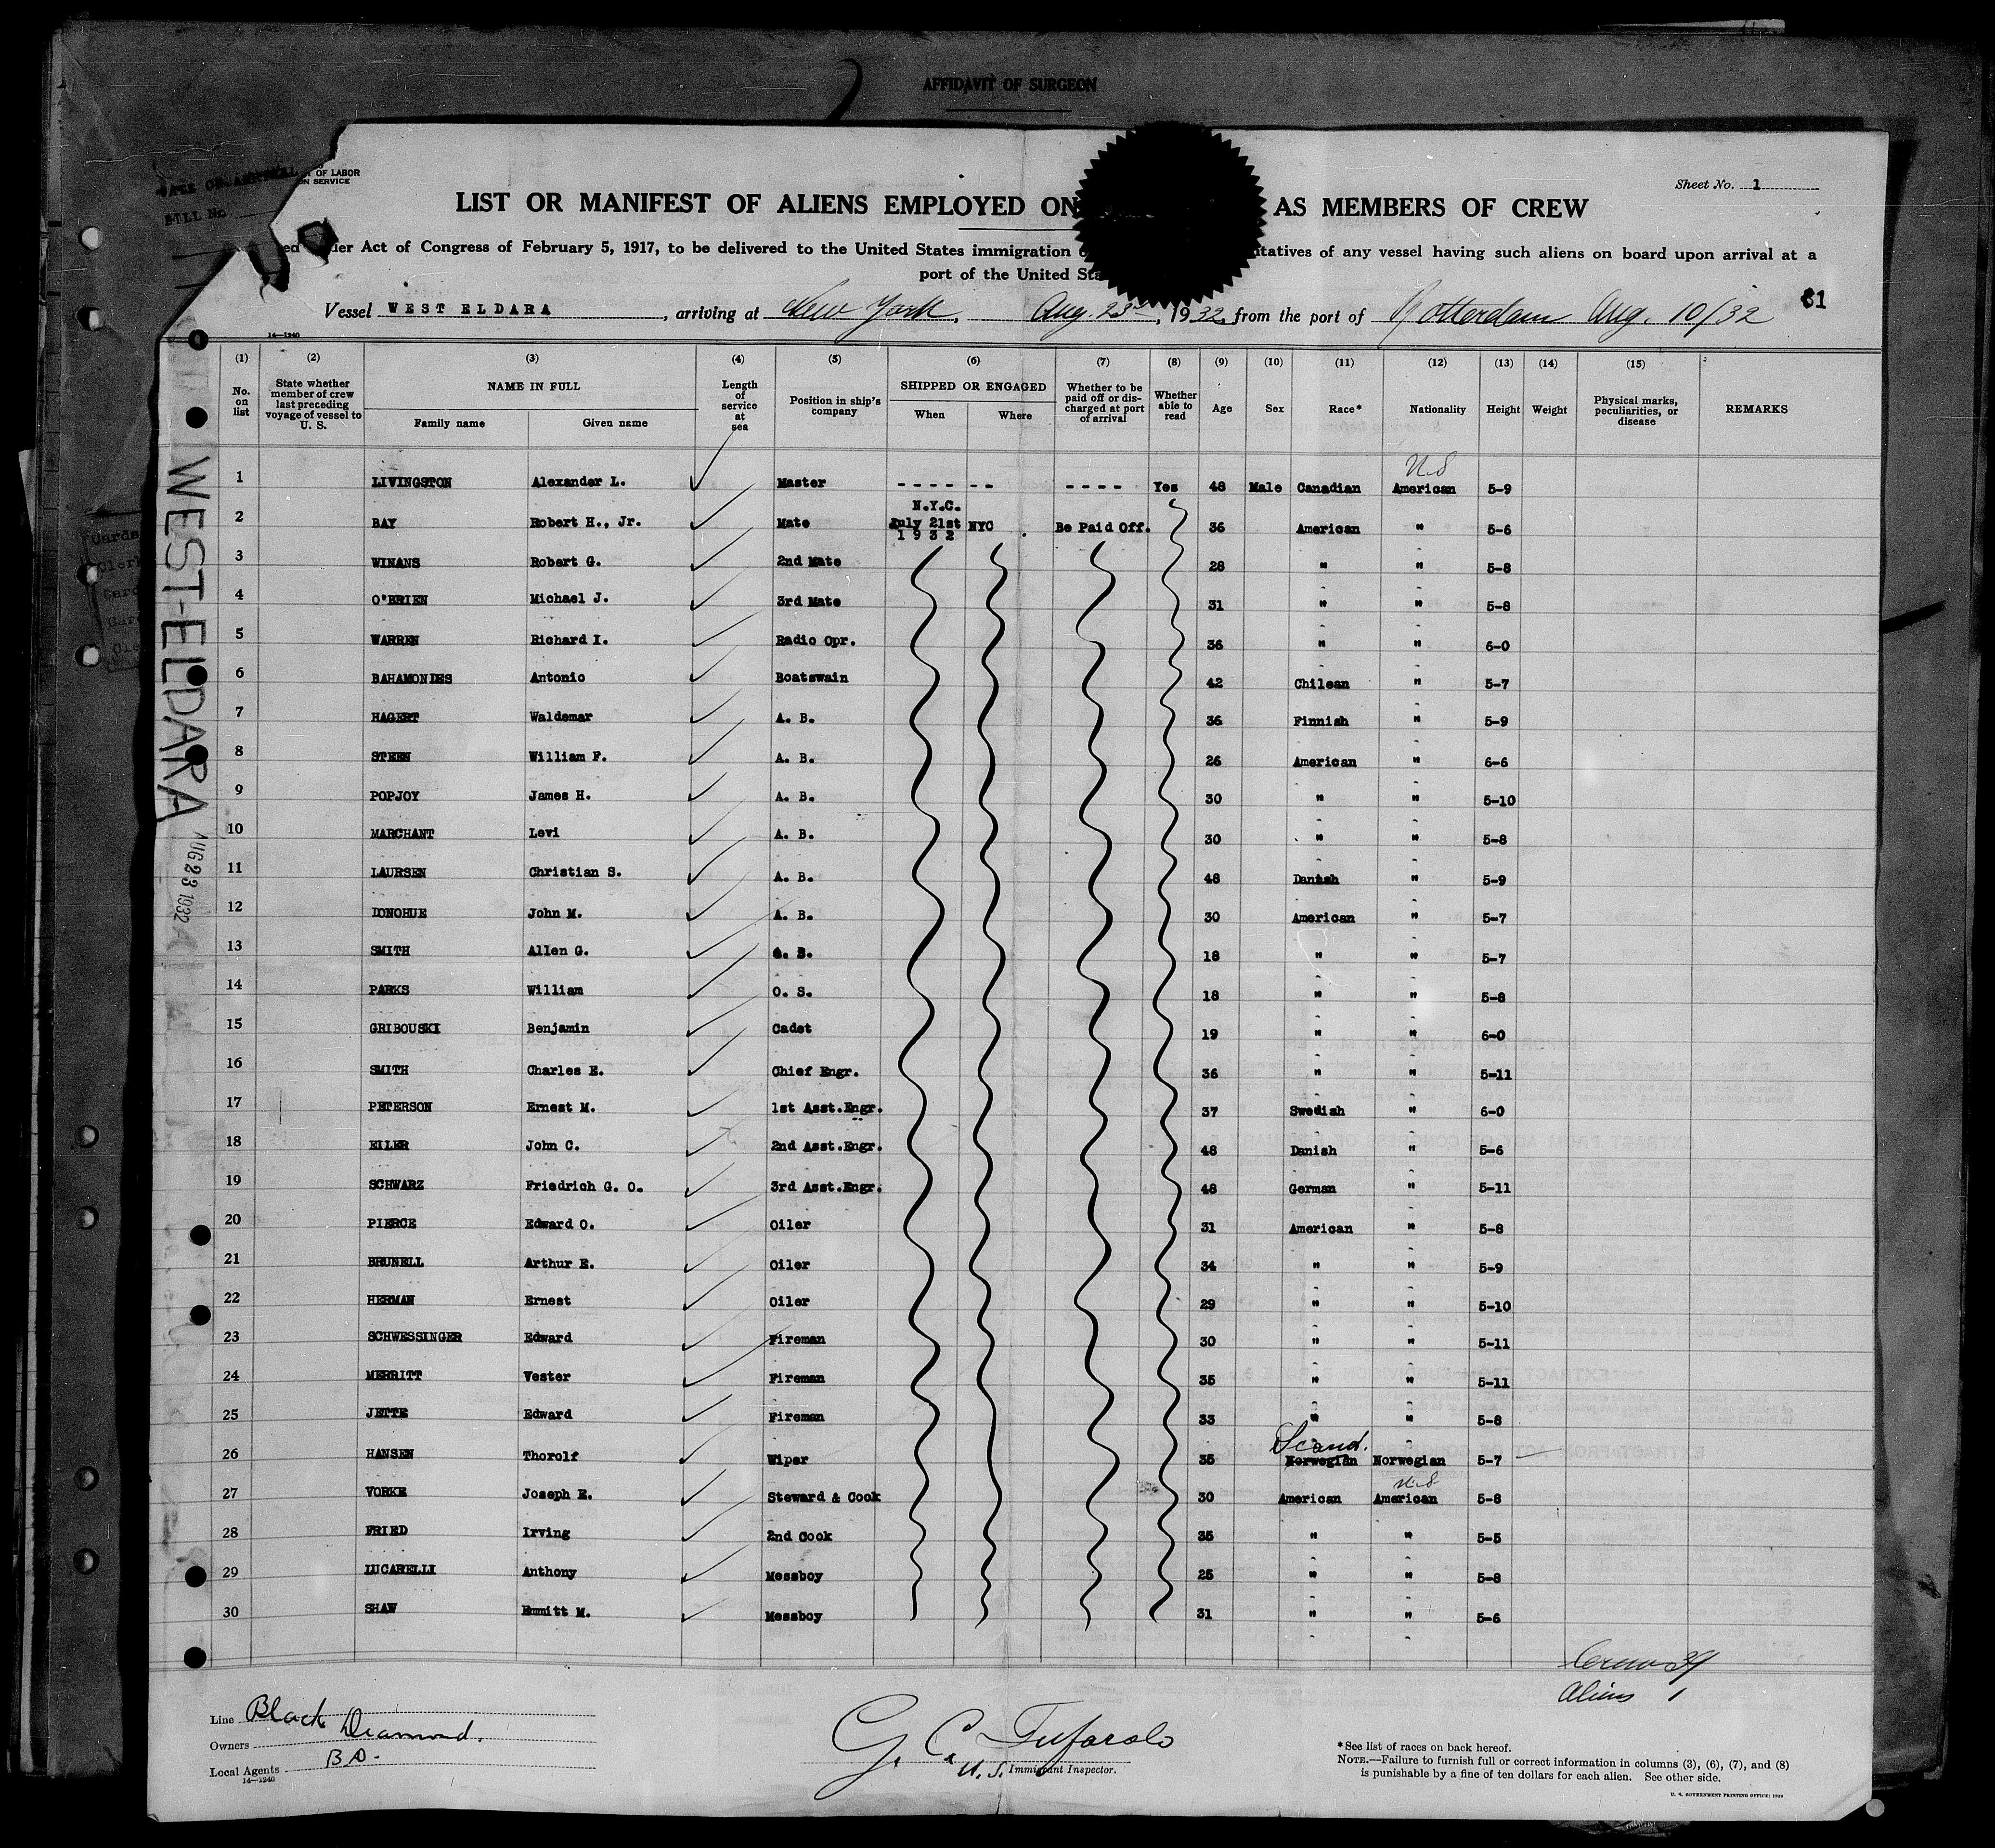 AFFIDAVIT OF SURGEON
OF LABOR
SERVICE
BILL No
Sheet No. 1
LIST OR MANIFEST OF ALIENS EMPLOYED ON AS MEMBERS OF CREW
Act of Congress of February 5, 1917, to be delivered to the United States immigration of any vessel having such aliens on board upon arrival at a
port of the United
Vessel WEST ELDARA, arriving at New York, Aug. 23rd, 1932, from the port of Rotterdam Aug. 10/32
31
14—1240
(1) (2) (3) (4) (5) (6) (7) (8) (9) (10) (11) (12) (13) (14) (15)
No. on list
State whether member of crew last preceding voyage of vessel to U. S.
NAME IN FULL
Family name Given name
Length of service at sea
Position in ship's company
SHIPPED OR ENGAGED
When Where
Whether to be paid off or discharged at port of arrival
Whether able to read
Age Sex Race* Nationality Height Weight
Physical marks, peculiarities, or disease
REMARKS
U.S
1 LIVINGSTON Alexander L. Master - - - - - - - - - - Yes 48 Male Canadian American 5-9
2 BAY Robert H., Jr. Mate N.Y.C. July 21st 1932 NYC . Be Paid Off. 36 American " 5-6
3 WINANS Robert G. 2nd Mate 28 " " 5-8
4 O'BRIEN Michael J. 3rd Mate 31 " " 5-8
5 WARREN Richard I. Radio Opr. 36 " " 6-0
6 BAHAMONDES Antonio Boatswain 42 Chilean " 5-7
7 HAGERT Waldemar A. B. 36 Finnish " 5-9
8 STEEN William F. A. B. 26 American " 6-6
9 POPJOY James H. A. B. 30 " " 5-10
10 MARCHANT Levi A. B. 30 " " 5-8
11 LAURSEN Christian S. A. B. 48 Danish " 5-9
12 DONOHUE John M. A. B. 30 American " 5-7
13 SMITH Allen G. 18 " " 5-7
14 PARKS William O. S. 18 " " 5-8
15 GRIBOUSKI Benjamin Cadet 19 " " 6-0
16 SMITH Charles E. Chief Engr. 36 " " 5-11
17 PETERSON Ernest M. 1st Asst.Engr. 37 Swedish " 6-0
18 EILER John C. 2nd Asst.Engr. 48 Danish " 5-6
19 SCHWARZ Friedrich G. O. 3rd Asst.Engr. 48 German " 5-11
20 PIERCE Edward O. Oiler 31 American " 5-8
21 BRUNELL Arthur E. Oiler 34 " " 5-9
22 HERMAN Ernest Oiler 29 " " 5-10
23 SCHWESSINGER Edward Fireman 30 " " 5-11
24 MERRITT Vester Fireman 35 " " 5-11
25 JETTE Edward Fireman 33 " " 5-8
Scand.
26 HANSEN Thorolf Wiper 35 Norwegian Norwegian 5-7
U.S
27 VORKE Joseph E. Steward & Cook 30 American American 5-8
28 FRIED Irving 2nd Cook 35 " " 5-5
29 LUCARELLI Anthony Messboy 25 " " 5-8
30 SHAW Emmitt M. Messboy 31 " " 5-6
WEST-ELDARA
AUG 23 1932
Aliens 1
Line Black Diamond.
Owners
B.D.
Local Agents
14—1240
G. C. Tufarolo
U. S. Immigrant Inspector.
*See list of races on back hereof.
NOTE.—Failure to furnish full or correct information in columns (3), (6), (7), and (8)
is punishable by a fine of ten dollars for each alien. See other side.
U. S. GOVERNMENT PRINTING OFFICE: 1929